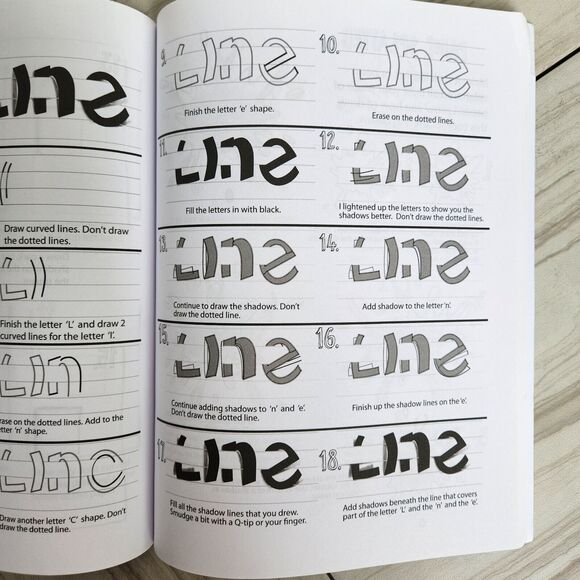 Line
Draw curved lines. Don't draw
the dotted lines.
Finish the letter 'L' and draw 2
curved lines for the letter 'I'.
rase on the dotted lines. Add to the
tter 'n' shape.
Draw another letter 'C' shape. Don't
draw the dotted line.
9.
Line
Finish the letter 'e' shape.
10.
Line
Erase on the dotted lines.
11.
Line
Fill the letters in with black.
12.
Line
I lightened up the letters to show you the
shadows better. Don't draw the dotted lines.
13.
Line
Continue to draw the shadows. Don't
draw the dotted line.
14.
Line
Add shadow to the letter 'n'.
15.
Line
Continue adding shadows to 'n' and 'e'.
Don't draw the dotted line.
16.
Line
Finish up the shadow lines on the 'e'.
17.
Line
Fill all the shadow lines that you drew.
Smudge a bit with a Q-tip or your finger.
18.
Line
Add shadows beneath the line that covers
part of the letter 'L' and the 'n' and the 'e'.